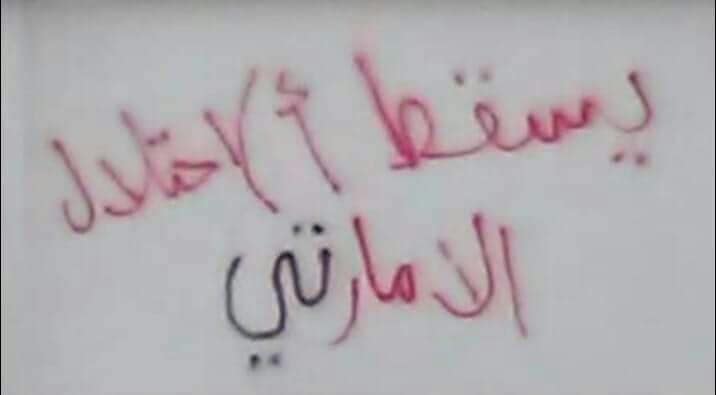 يسقط ألاحتلال
الامارتي